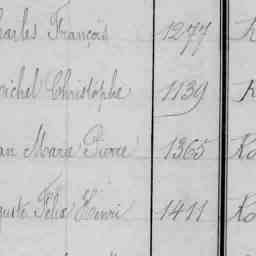 harles François 1277 K
michel Christophe 1139 K
an Marie Pierre 1365 Ko
guste Félix Henri 1411 Ko